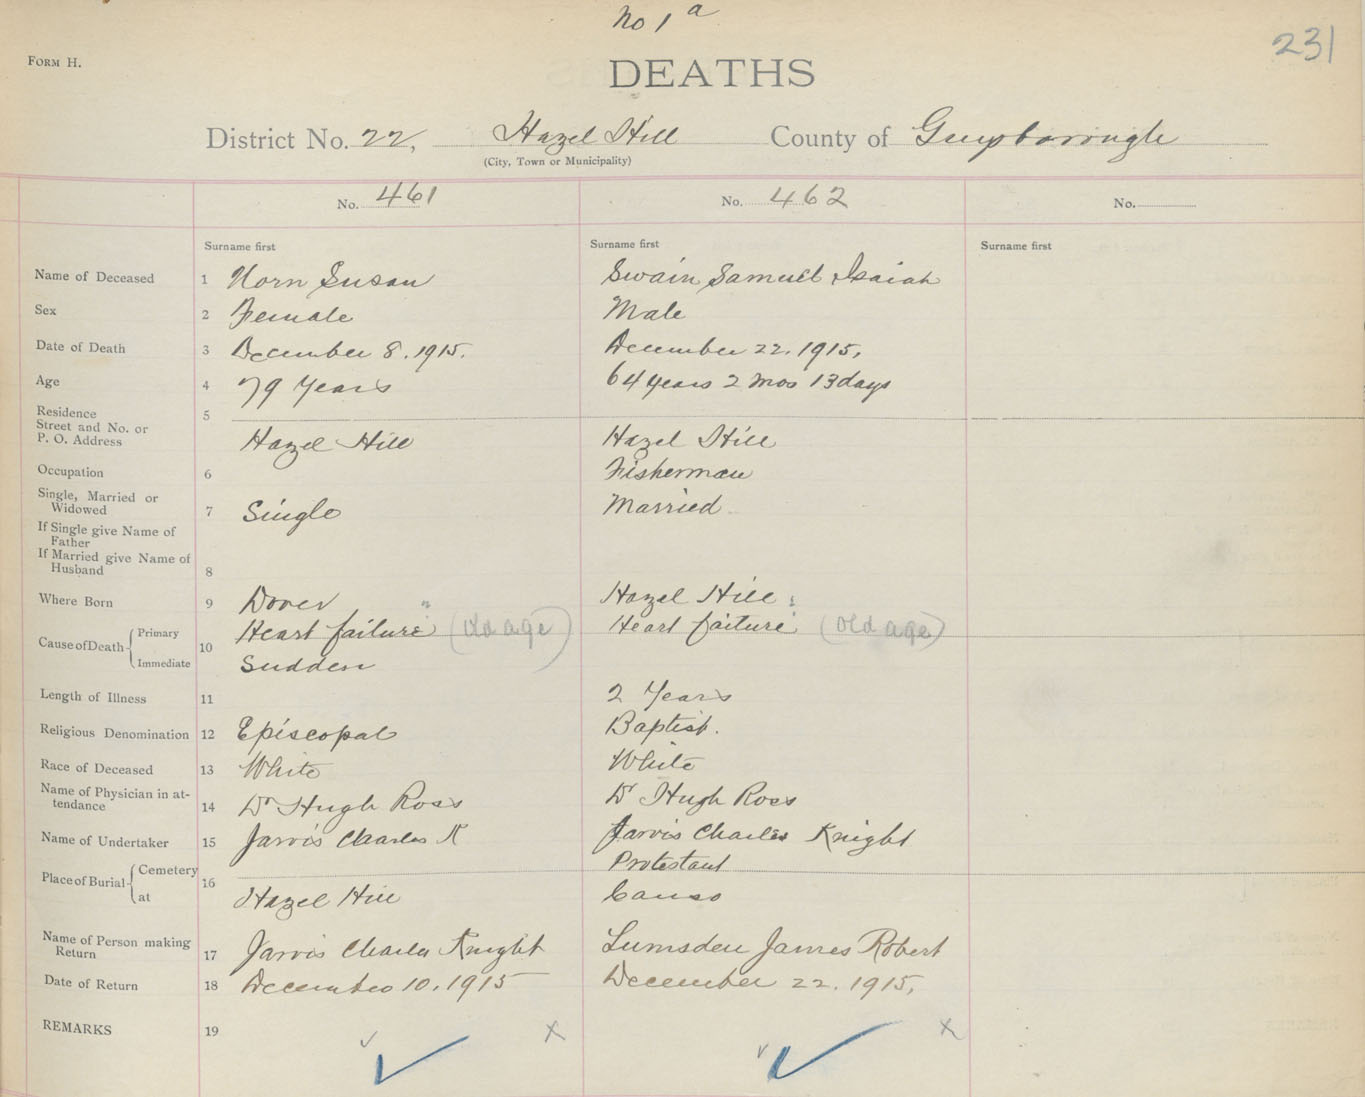 No 1 a
231
FORM H.
DEATHS
District No. 22, Hazel Hill County of Guysborough
(City, Town or Municipality)
No. 461 No. 462 No.
Surname first Surname first Surname first
Name of Deceased 1 Horn Susan Swain Samuel Isaiah
Sex 2 Female Male
Date of Death 3 December 8. 1915. December 22. 1915,
Age 4 79 Years 64 years 2 mos 13 days
Residence
Street and No. or 5
P. O. Address Hazel Hill Hazel Hill
Occupation 6 Fisherman
Single, Married or
Widowed 7 Single Married
If Single give Name of
Father
If Married give Name of
Husband 8
Where Born 9 Dover Hazel Hill
Cause of Death Primary 10 Heart failure (old age) Heart failure (old age)
Immediate Sudden
Length of Illness 11 2 Years
Religious Denomination 12 Episcopal Baptist.
Race of Deceased 13 White White
Name of Physician in at-
tendance 14 Dr Hugh Ross Dr Hugh Ross
Name of Undertaker 15 Jarvis Charles K Jarvis Charles Knight
Place of Burial Cemetery 16 Protestant
at Hazel Hill Canso
Name of Person making
Return 17 Jarvis Charles Knight Lumsden James Robert
Date of Return 18 December 10. 1915 December 22. 1915,
REMARKS 19